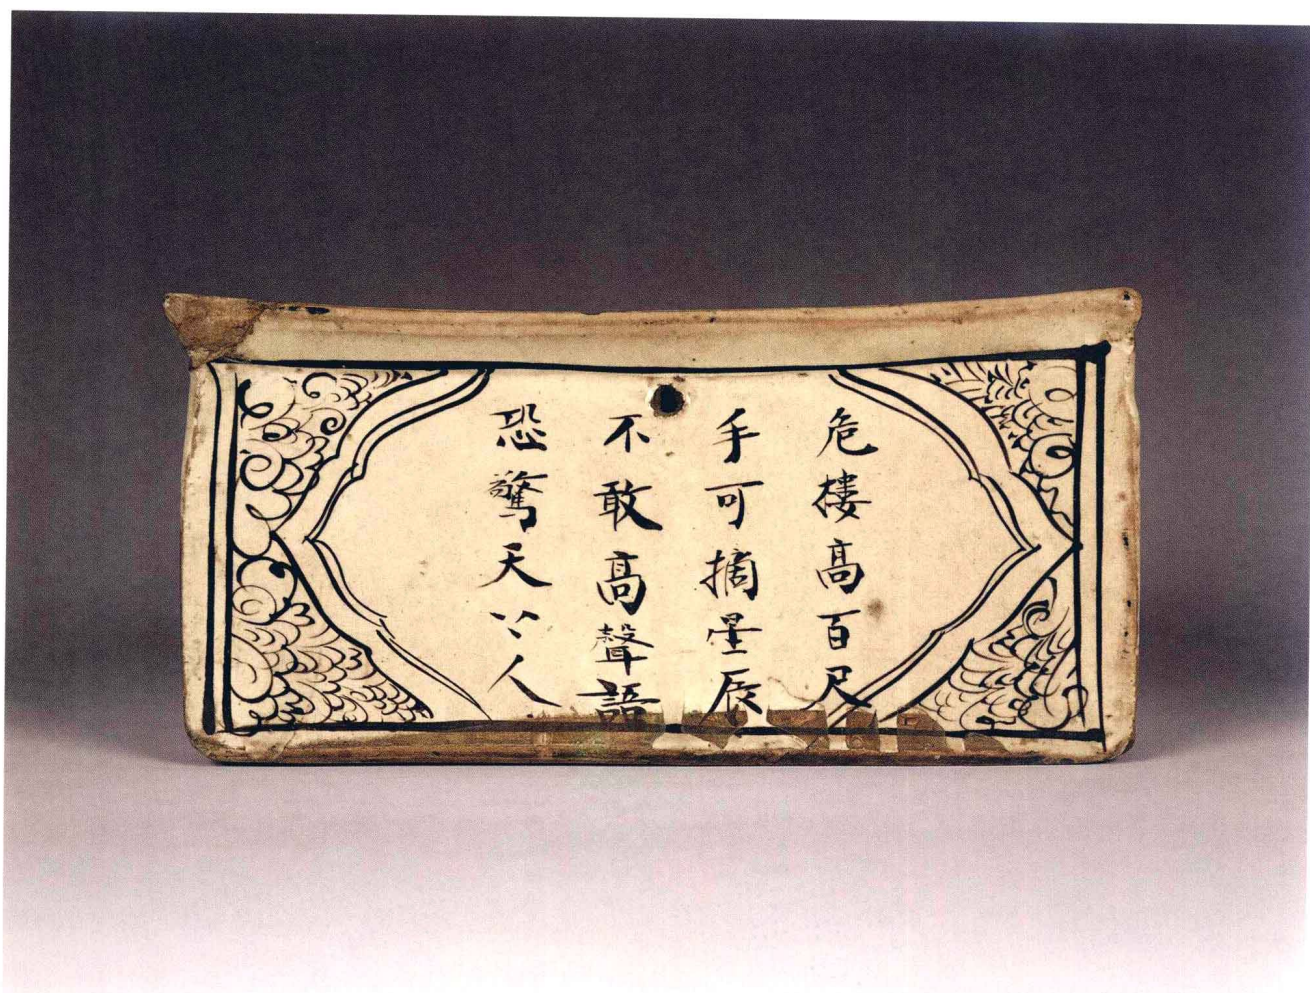 危樓高百尺
手可摘星辰
不敢高聲語
恐驚天公人